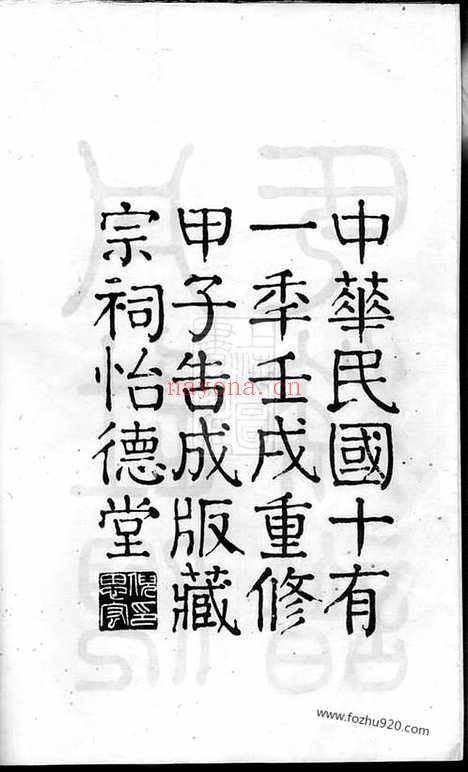 中華民國十有
一秊壬戌重修
甲子告成版藏
宗祠怡德堂
nayona.cn
www.fozhu920.com